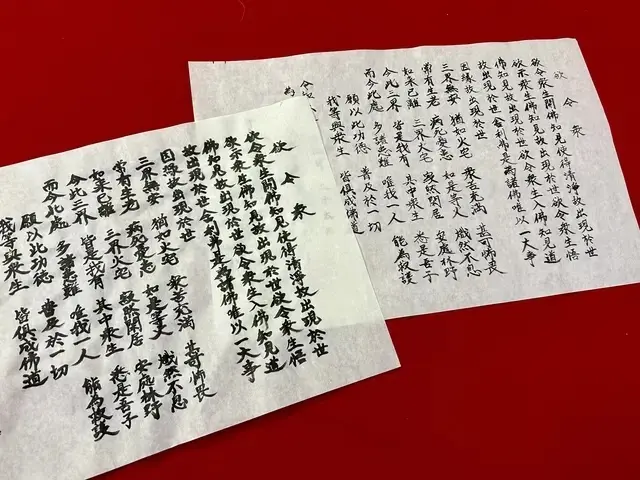 欲令衆
欲令衆生開佛知見使得清淨故出現於世
欲示衆生佛知見故出現於世欲令衆生悟
佛知見故出現於世欲令衆生入佛知見道
故出現於世舍利弗是為諸佛唯以一大事
因縁故出現於世
三界無安 猶如火宅 衆苦充滿 甚可怖畏
常有生老 病死憂患 如是等火 熾然不息
如来已離 三界火宅 寂然閑居 安處林野
今此三界 皆是我有 其中衆生 悉是吾子
而今此處 多諸患難 唯我一人 能為救護
願以此功徳 普及於一切
我等與衆生 皆倶成佛道
欲令衆
欲令衆生開佛知見使得清淨故出現於世
欲示衆生佛知見故出現於世欲令衆生悟
佛知見故出現於世欲令衆生入佛知見道
故出現於世舍利弗是為諸佛唯以一大事
因縁故出現於世
三界無安 猶如火宅 衆苦充滿 甚可怖畏
常有生老 病死憂患 如是等火 熾然不息
如来已離 三界火宅 寂然閑居 安處林野
今此三界 皆是我有 其中衆生 悉是吾子
而今此處 多諸患難 唯我一人 能為救護
願以此功徳 普及於一切
我等與衆生 皆倶成佛道